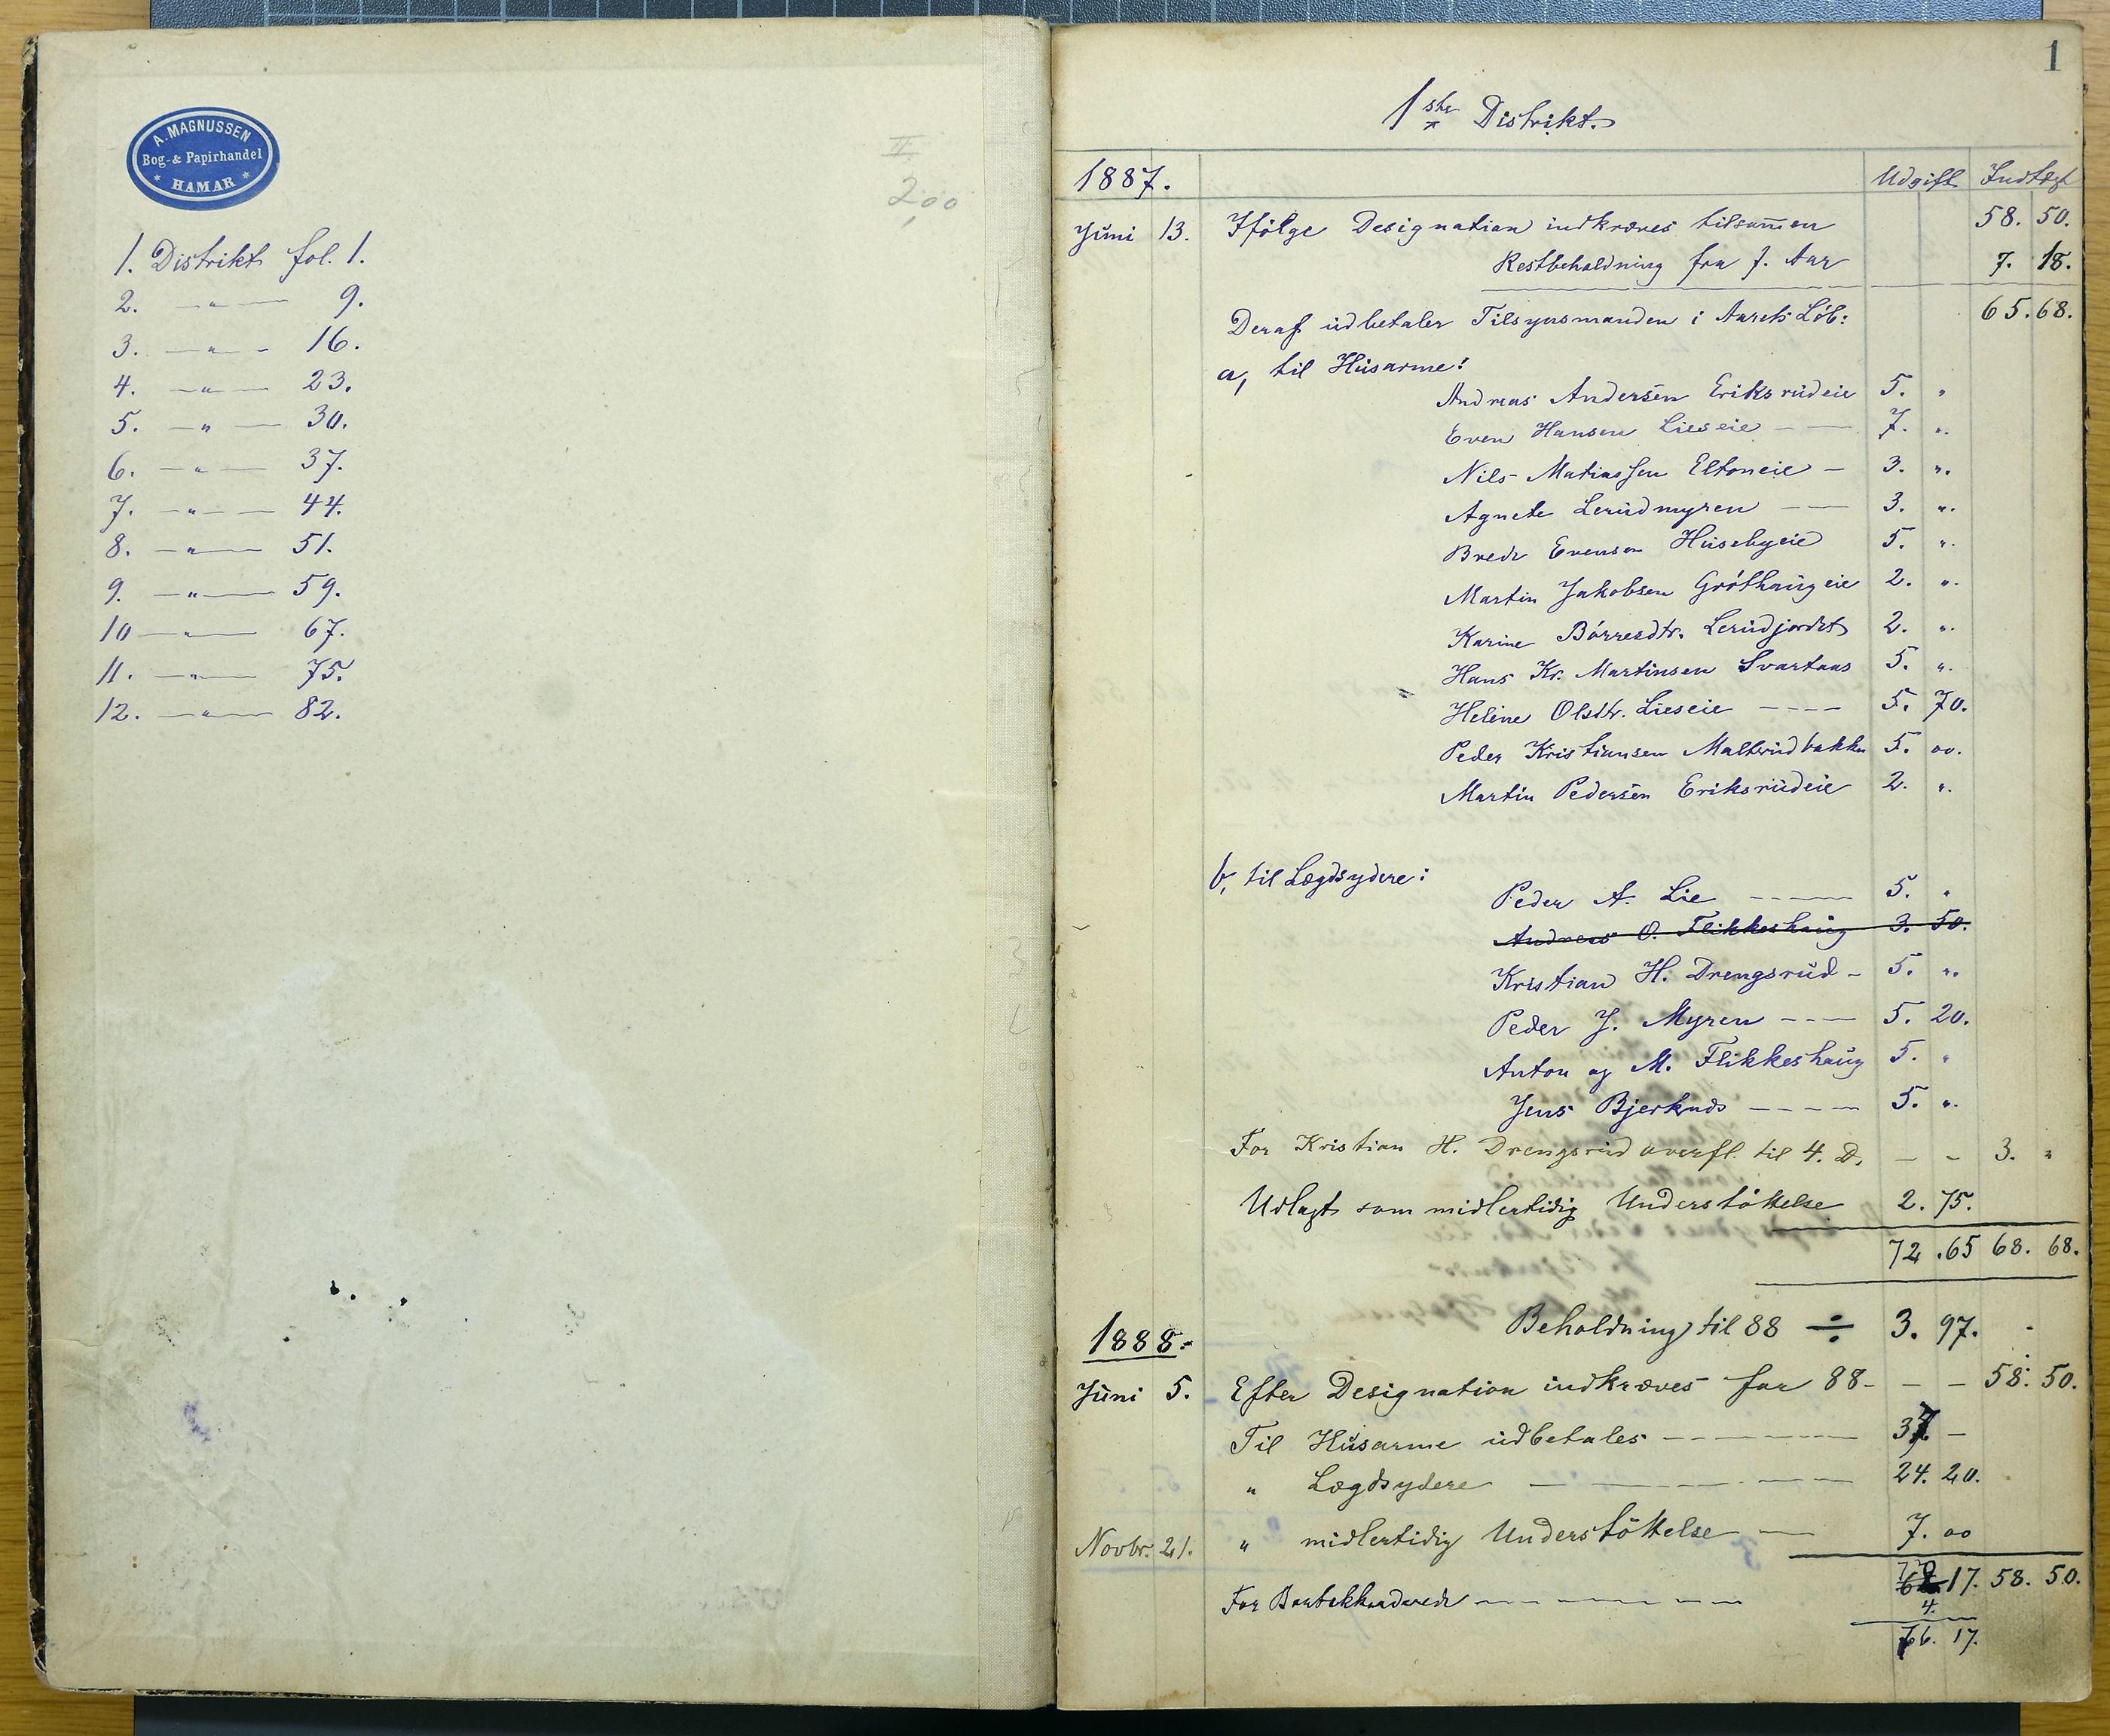 A. MAGNUSSEN
Bog- & Papirhandel
* HAMAR *
II
2,00
1. Distrikt fol. 1.
2. —„— 9.
3. —„— 16.
4. —„— 23.
5. —„— 30.
6. —„— 37.
7. —„— 44.
8. —„— 51.
9. —„— 59.
10 —„— 67.
11. —„— 75.
12. —„— 82.
1
1ste Distrikt.
1887. Udgift Indtægt
Juni 13. Ifölge Designation indkræves tilsammen 58. 50.
Restbeholdning fra f. Aar 7. 18.
Deraf udbetaler Tilsynsmanden i Aarets Löb: 65. 68.
a, til Husarme:
Andreas Andersen Eriksrudeie 5. „
Even Hansen Lieseie — — 7. „.
Nils Matiassen Eltoneie — 3. „.
Agnete Lerudmyren — — 3. „.
Brede Evensen Husebyeie 5. „.
Martin Jakobsen Gröthaugeie 2. „.
Karine Börresdtr. Lerudjordet 2. „.
Hans Kr. Martinsen Svartaas 5. „.
Heline Olsdtr. Lieseie — — — 5. 70.
Peder Kristiansen Malterudbakken 5. 00.
Martin Pedersen Eriksrudeie 2. „.
b, til Lægdsydere:
Peder A. Lie — — — 5. „
Andreas O. Flikkeshaug 3. 50.
Kristian H. Drengsrud — 5. „.
Peder J. Myren — — — 5. 20.
Anton og M. Flikkeshaug 5. „
Jens Bjerknes — — — — 5. „.
For Kristian H. Drengsrud overfl. til 4. D. — — 3. „
Udlagt som midlertidig Understöttelse 2. 75.
72. 65 68. 68.
Beholdning til 88 ÷ 3. 97. -
1888.
Juni 5. Efter Designation indkræves for 88 - — — 58. 50.
Til Husarme udbetales — — — 37. —
„ Lægdsydere — — — 24. 20.
Novbr. 21. „ midlertidig Understöttelse — 7. 00
17. 58. 50.
For — — — — 4.
76. 17.